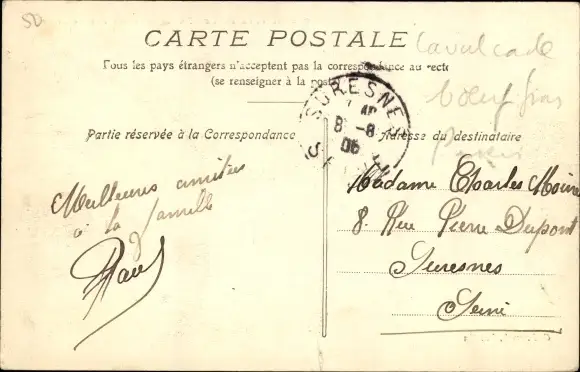 50
CARTE POSTALE
Tous les pays étrangers n'acceptent pas la correspondance au recto
(se renseigner à la poste)
Cavalcade
boeuf gras
Paris
SURESNES
8 -8
06
Partie réservée à la Correspondance
Adresse du destinataire
Meilleures amitiés
à la famille
Madame Charles Moine
8. Rue Pierre Dupont
Suresnes
Seine